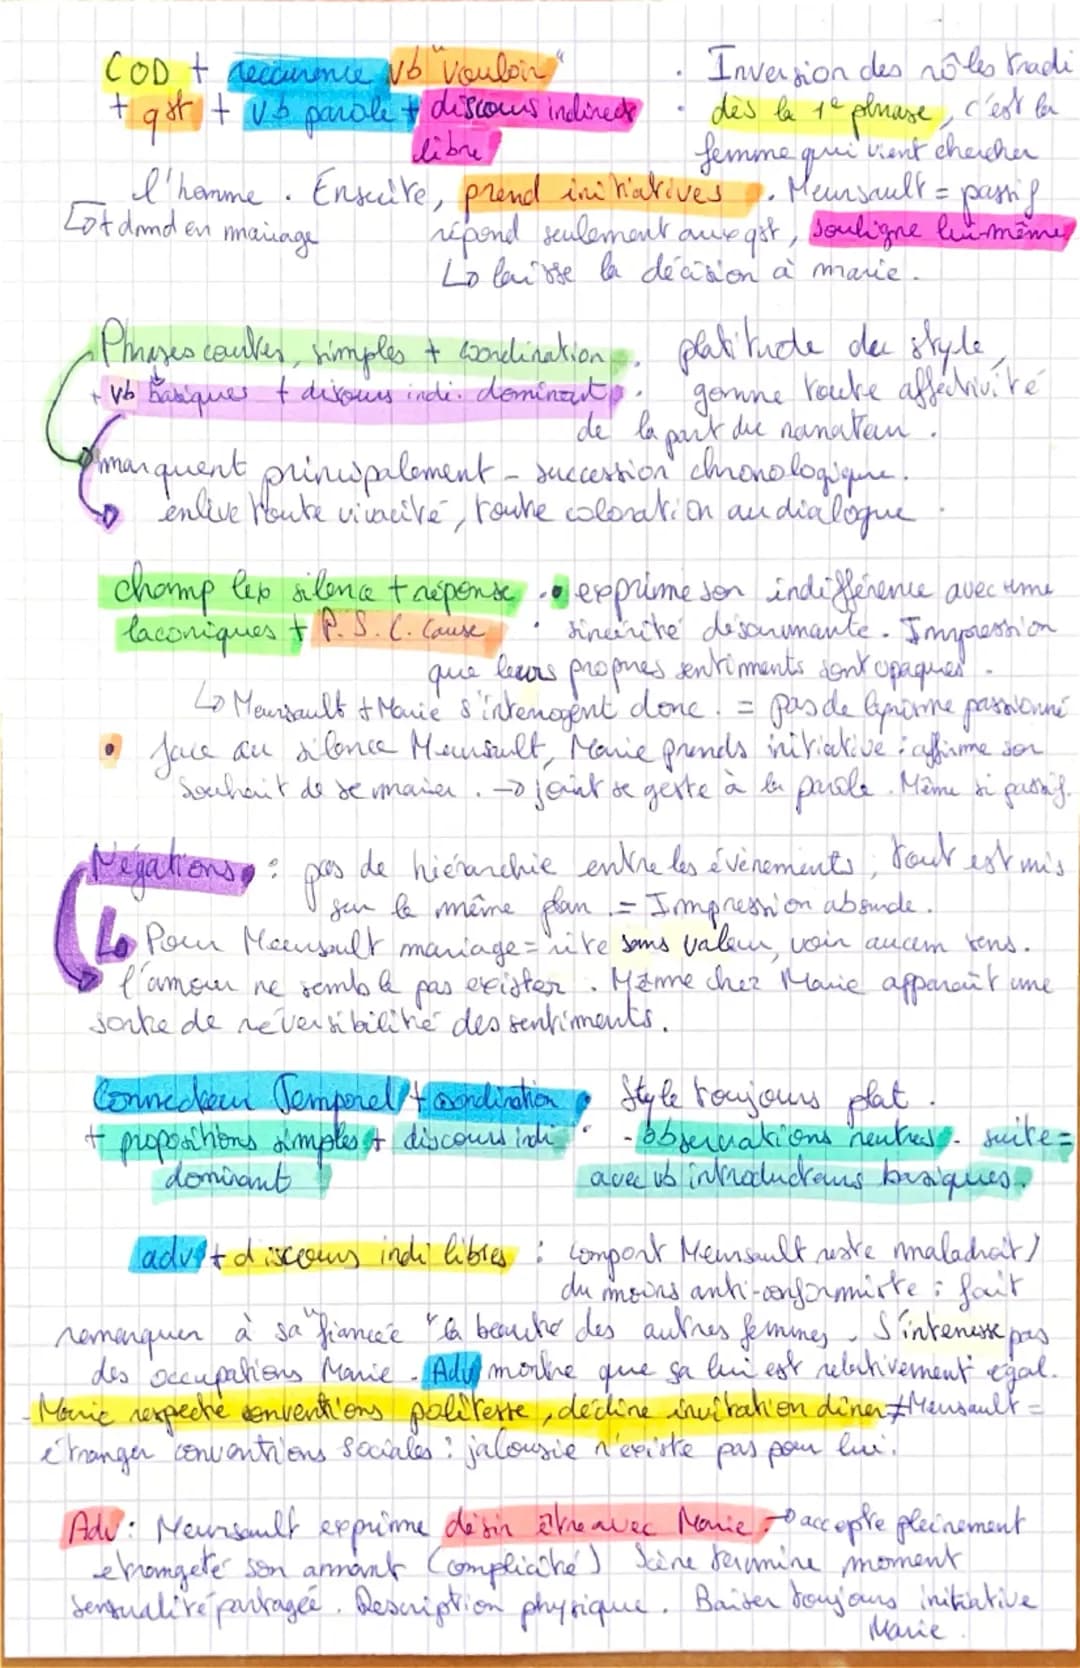 COD + récurrence vb "vouloir" · Inversion des rôles tradi
+ qst + vb parole + discours indirect · dès la 1e phrase, c'est la
libre femme qui vient chercher
l'homme. Ensuite, prend initiatives. Meursault = passif
↳ + dmd en mariage répond seulement aux qst, souligne lui-même
↳ laisse la décision à marie.
Phrases courtes, simples + coordination · platitude du style,
+ vb basiques + discours indi. dominant · gomme toute affectivité
de la part du narrateur.
marquent principalement - succession chronologique.
enlève toute vivacité, toute coloration au dialogue.
champ lex silence + réponse · exprime son indifférence avec une
laconiques + P.S.C. Cause · sincérité désarmante. Impression
que leurs propres sentiments sont opaques.
↳ Meursault + Marie s'interrogent donc. = pas de lyrisme passionné
• face au silence Meursault, Marie prends initiative : affirme son
souhait de se marier. → joint le geste à la parole. Même si passif.
Négations : pas de hiérarchie entre les évènements, tout est mis
sur le même plan. = Impression absurde.
↳ Pour Meursault mariage = rite sans valeur, voir aucun sens.
l'amour ne semble pas exister. Même chez Marie apparaît une
sorte de réversibilité des sentiments.
Connecteur Temporel + coordination · Style toujours plat.
+ propositions simples + discours indi · - observations neutres - suite =
dominant avec vb introducteurs basiques.
adv + discours indi libres : comport Meursault reste maladroit /
du moins anti-conformiste : fait
remarquer à sa "fiancée" la beauté des autres femmes. S'intéresse pas
des occupations Marie. Adv montre que sa lui est relativement égal.
- Marie respecte conventions politesse, décline invitation dîner ≠ Meursault =
étranger conventions sociales : jalousie n'existe pas pour lui.
Adv : Meursault exprime désir être avec Marie. → accepte pleinement
étrangeté son amant (complicité) Scène termine moment
sensualité partagée. Description physique. Baiser toujours initiative
Marie.